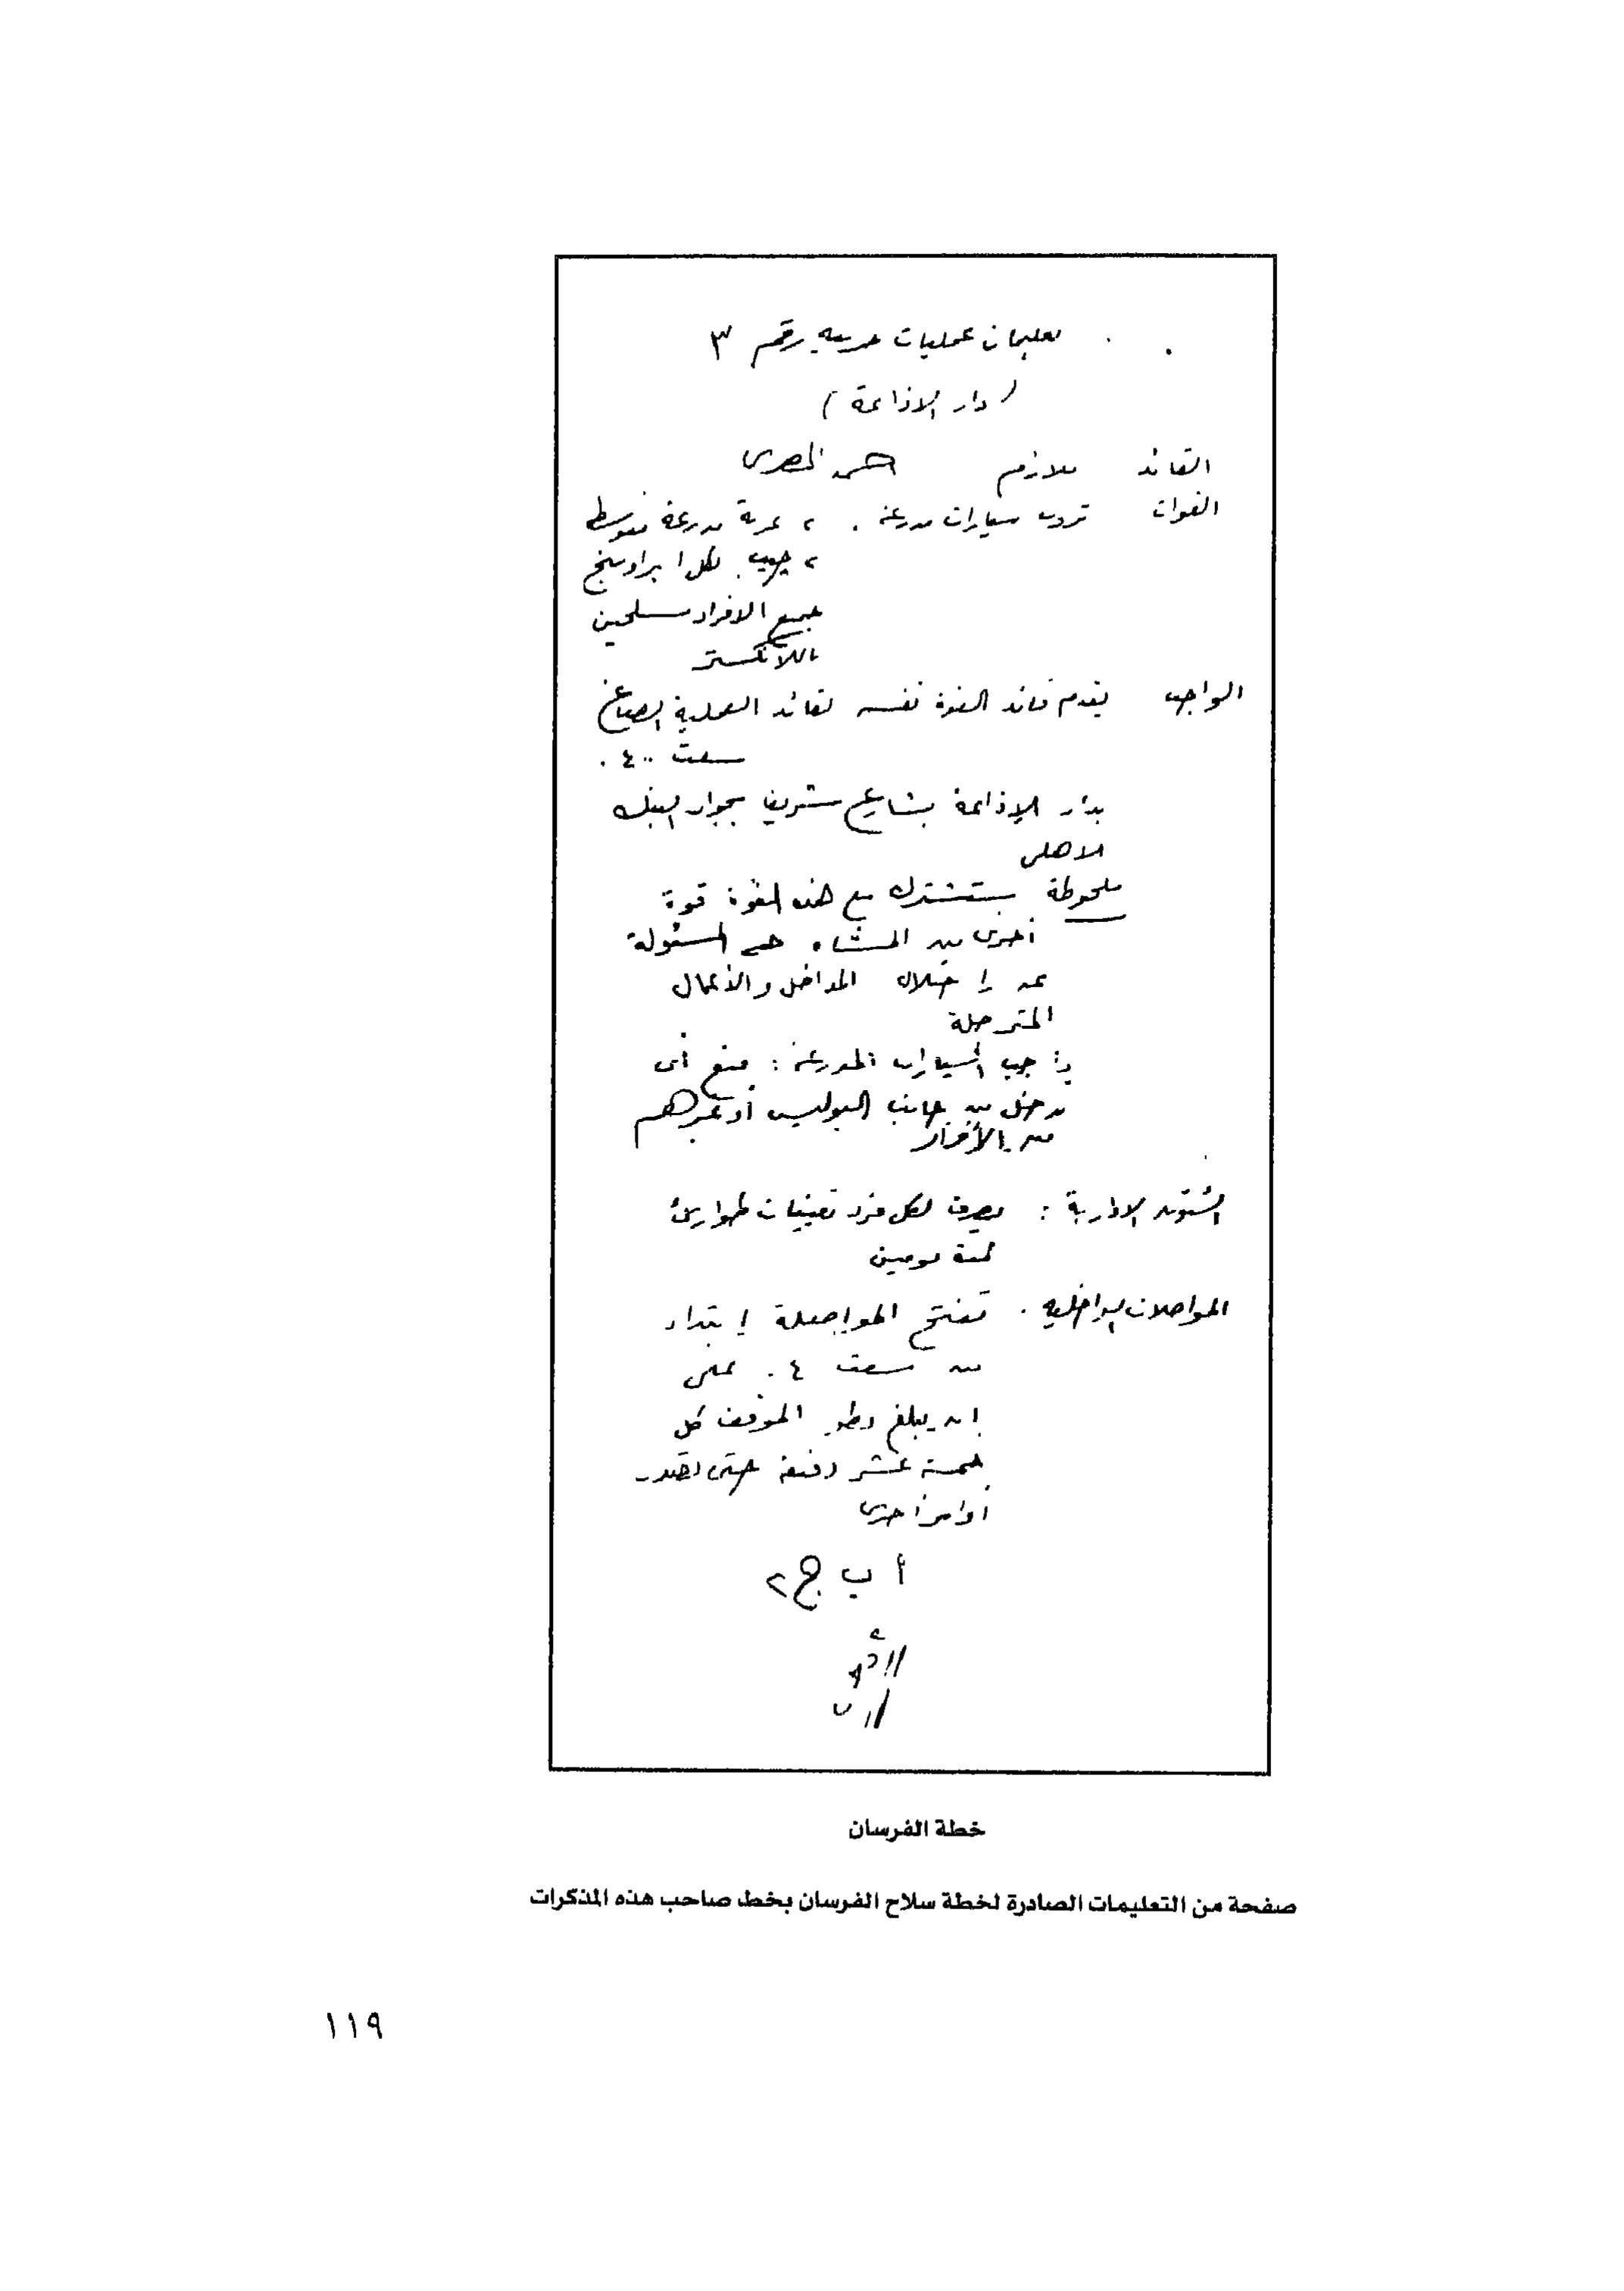 تعليمات عمليات حربية رقم ٣
(دار الاذاعة)
القائد ملازم حسن المصرى
القوات تروب سيارات مدرعة . ٢ عربة مدرعة متوسطة
٢ جيب . لكل ١ براوننج
جميع الافراد مسلحين
باللانكستر
الواجب يقدم قائد القوة نفسه لقائد العملية الصباغ
سعت ٤٠٠ .
بدار الإذاعة بشارع شريف بجوار البنك
الاهلى
ملحوظة ستشترك مع هذه القوة قوة
أخرى من المشاه هى المسئولة
عن إحتلال المداخل والأعمال
المترجلة
واجب السيارات المدرعة : منع أى
تدخل من جانب البوليس أو غيرهم
من الأفراد
الشئون الادارية : يصرف لكل فرد تعيينات طوارئ
لمدة يومين
المواصلات الداخلية . تفتح المواصلة إبتداء
من سعت ٤٠ على
ان يبلغ تطور الموقف كل
خمسة عشر دقيقة حتى تصدر
أوامر أخرى
أ ب ج ٢
خطة الفرسان
صفحة من التعليمات الصادرة لخطة سلاح الفرسان بخط صاحب هذه المذكرات
١١٩